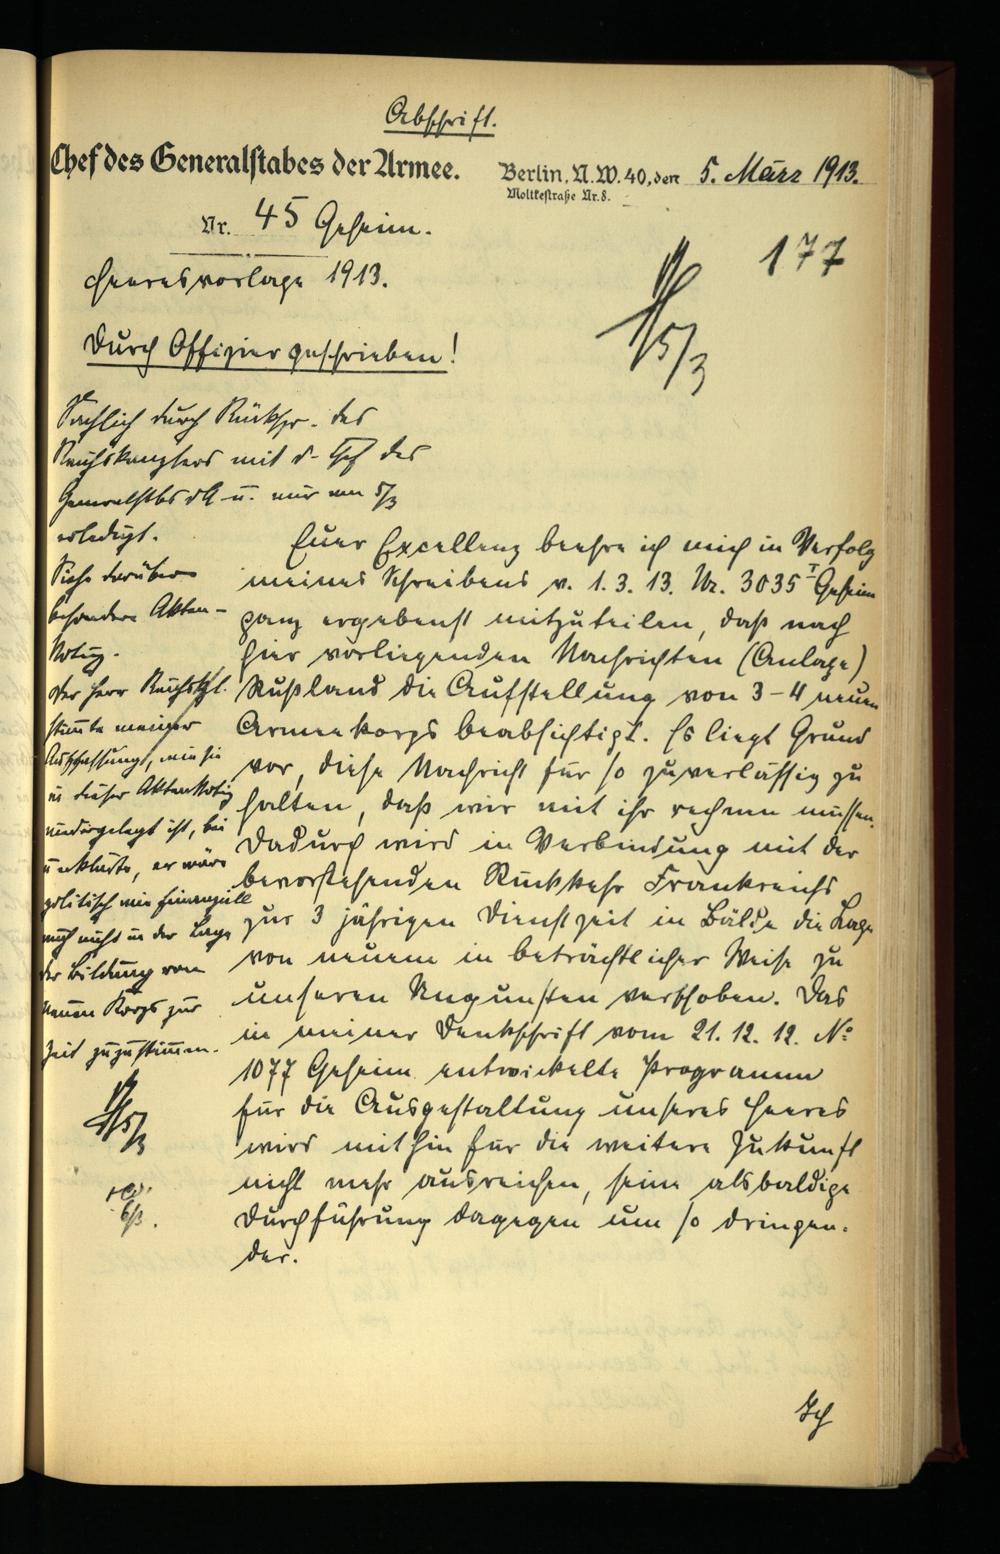 Abschrift.
Chef des Generalstabes der Armee.
Berlin, N.W. 40, den 5. März 1913.
Moltkestraße Nr. 8.
Nr. 45 Geheim.
177
Heeresvorlage 1913.
5/3
Durch Offizier geschrieben!
Sachlich durch Rückspr. des
Reichskanzlers mit d. Chef des
Generalstbs dA u. mir am 5/3
erledigt.
Siehe darüber
besondere Akten-
Notiz.
Der Herr Reichskzl.
stimmte meiner
Auffassung, wie sie
in dieser Aktennotiz
niedergelegt ist, bei
u. erklärte, er wäre
politisch wie finanziell
auch nicht in der Lage
der Bildung von
neuen Korps zur
Zeit zuzustimmen.
5/3
6/3.
Euer Excellenz beehre ich mich in Verfolg
meines Schreibens v. 1.3.13. Nr. 3035 I Geheim
ganz ergebenst mitzuteilen, daß nach
hier vorliegenden Nachrichten (Anlage)
Rußland die Aufstellung von 3-4 neuen
Armeekorps beabsichtigt. Es liegt Grund
vor, diese Nachricht für so zuverlässig zu
halten, daß wir mit ihr rechnen müssen.
Dadurch wird in Verbindung mit der
bevorstehenden Rückkehr Frankreichs
zur 3 jährigen Dienstzeit in Bälde die Lage
von neuem in beträchtlicher Weise zu
unseren Ungunsten verschoben. Das
in meiner Denkschrift vom 21.12.12. No
1077 Geheim entwickelte Programm
für die Ausgestaltung unseres Heeres
wird mithin für die weitere Zukunft
nicht mehr ausreichen, seine alsbaldige
Durchführung dagegen um so dringen-
der.
Ich